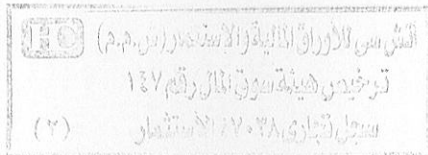 اتش سى للأوراق المالية والاستثمار (ش.م.م)
ترخيص هيئة سوق المال رقم ١٤٧
سجل تجارى ٧٠٣٨ / الاستثمار
(٢)